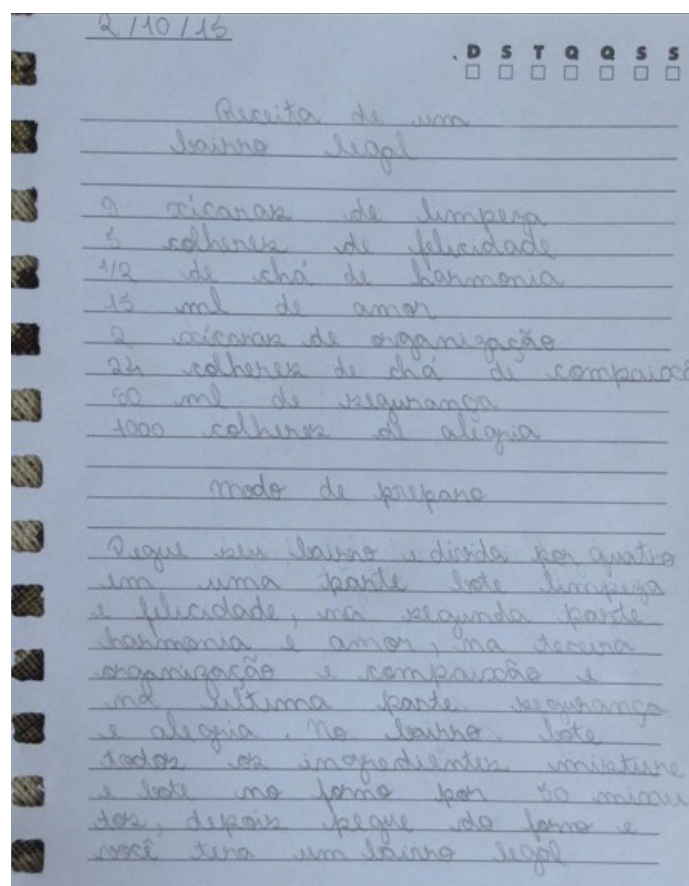 2/10/15
D S T Q Q S S
Receita de um
bairro legal
xícaras de limpeza
5 colheres de felicidade
1/2 de chá de harmonia
15 ml de amor
2 xícaras de organização
22 colheres de chá de compaixã
80 ml de segurança
1000 colheres de alegria
modo de preparo
Pegue seu bairro e divida por quatro
em uma parte bote limpeza
e felicidade, na segunda parte
harmonia e amor, na terceira
organização e compaixão e
na última parte segurança
e alegria. No bairro bote
todos os ingredientes misture
e bote no forno por 50 minu
tos, depois pegue do forno e
você tera um bairro legal